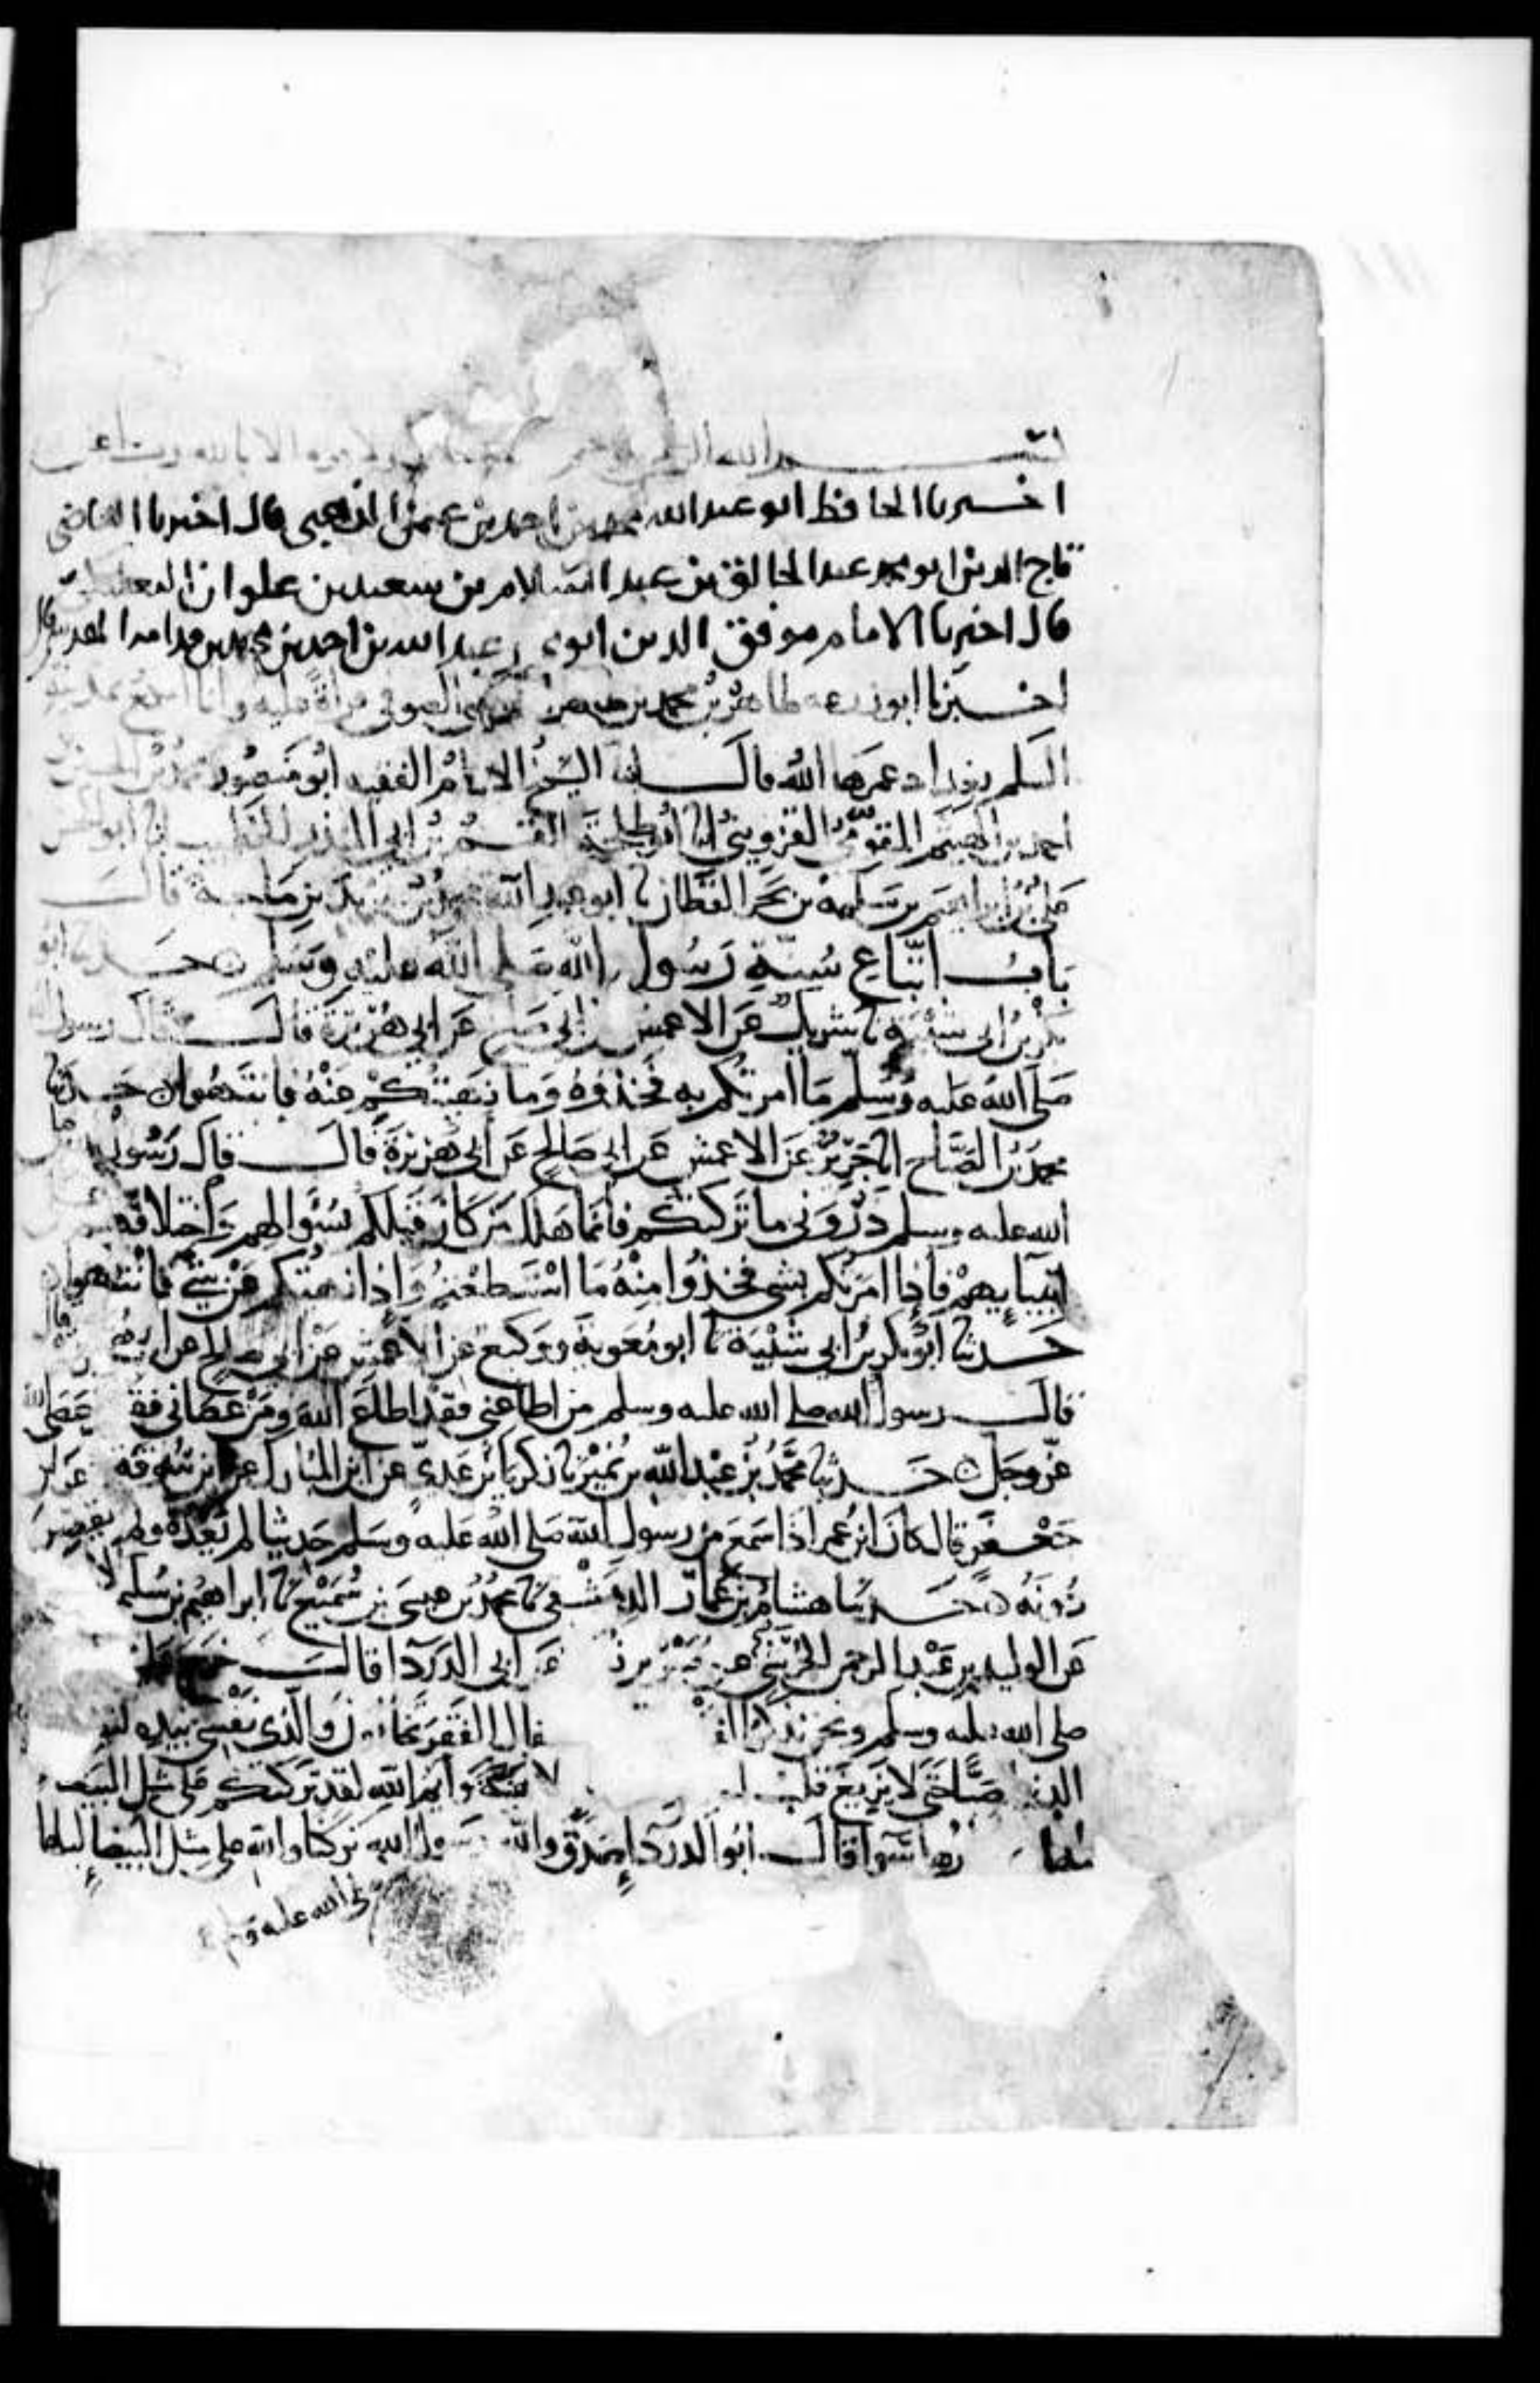 بسم الله الرحمن الرحيم ولا قوة الا بالله
اخبرنا الحافظ ابو عبد الله محمد بن احمد بن عثمن الذهبى قال اخبرنا القاضى
تاج الدين ابو محمد عبد الخالق بن عبد السلام بن سعيد بن علوان البعلبكى
قال اخبرنا الامام موفق الدين ابو عبد الله بن احمد بن محمد بن قدامه المقدسى قال
اخبرنا ابو زرعه طاهر بن محمد بن المقدسى الصوفى قراة عليه وانا اسمع بمدينة
السلم بغداد عمرها الله قال انا الشيخ الامام الفقيه ابو منصور محمد بن الحسين بن
احمد بن الهيثم المقومى القزوينى انا ابو طلحة القسم بن ابى المنذر الخطيب انا ابو الحسن
على بن ابراهيم بن سلمه بن بحر القطان نا ابو عبد الله محمد بن يزيد بن ماجة قال
باب اتباع سنة رسول الله صلى الله عليه وسلم حدثنا ابو
بكر بن ابى شيبة نا شريك عن الاعمش عن ابى صلح عن ابى هريرة قال قال رسول الله
صلى الله عليه وسلم ما امرتكم به فخذوه وما نهيتكم عنه فانتهوا حدثنا
محمد بن الصباح انا جرير عن الاعمش عن ابى صالح عن ابى هريرة قال قال رسول
الله عليه وسلم ذرونى ما تركتكم فانما هلك من كان قبلكم بسؤالهم واختلافهم
انبيايهم فاذا امرتكم بشى فخذوا منه ما استطعتم واذا نهيتكم عن شى فانتهوا
حدثنا ابو بكر بن ابى شيبة نا ابو معوية ووكيع عن الاعمش عن ابى صالح عن ابى هريرة
قال رسول الله صلى الله عليه وسلم من اطاعنى فقد اطاع الله ومن عصانى فقد عصى الله
عز وجل حدثنا محمد بن عبد الله بن نمير نا زكريا بن عدى عن ابن المبارك عن ابن سوقة عن ابى
جعفر قال كان ابن عمر اذا سمع من رسول الله صلى الله عليه وسلم حديثا لم يعده ولم يقصر
دونه حدثنا هشام بن عمار الدمشقى نا محمد بن عيسى بن سميع نا ابراهيم بن سليم
عن الوليد بن عبد الرحمن الجرشى عن جبير بن عن ابى الدردا قال خرج علينا
صلى الله عليه وسلم ونحن نذكر الفقر فقال الفقر تخافون والذى نفسى بيده
الدنيا صبا حتى لا يزيغ قلب الا هيه وايم الله لقد تركتكم على مثل البيضا
ليلها ونهارها سوا قال ابو الدردا صدق والله رسول الله تركنا والله على مثل البيضا ليلها
صلى الله عليه وسلم